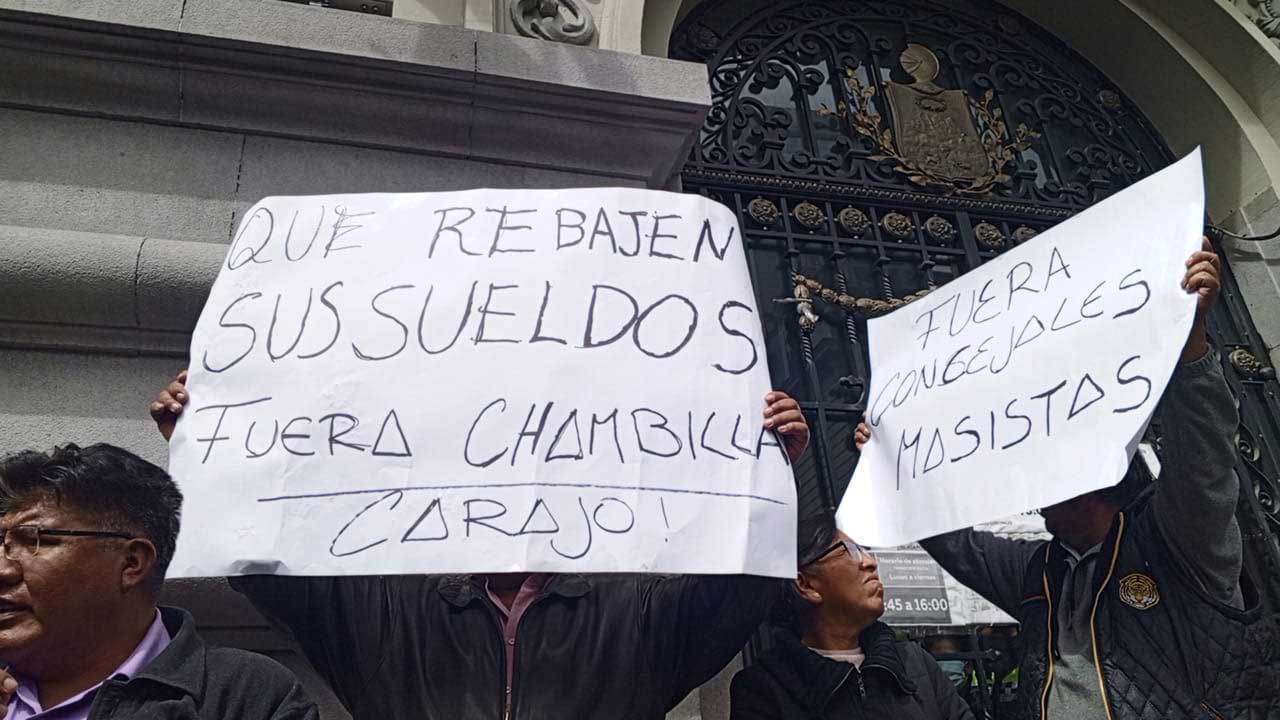 QUE REBAJEN
SUS SUELDOS
FUERA CHAMBILLA
CARAJO!
FUERA
CONSEJALES
MASISTAS
Horario de atención
Lunes a viernes
:45 a 16:00